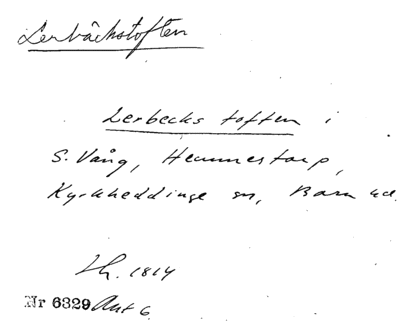 Lerbäckstoften
Lerbecks toften i
S. Vång, Hemmestorp,
Kyrkheddinge sn, Bara hd.
Lh. 1814
Nr 6329 Akt 6